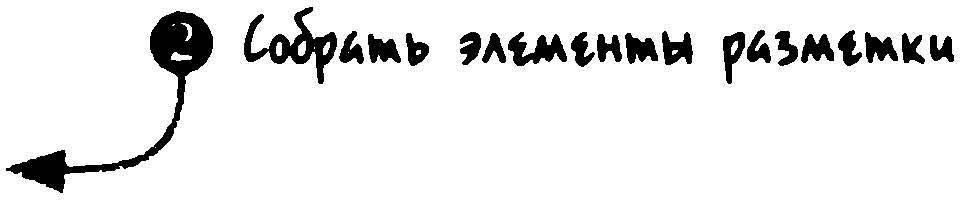 2 Собрать элементы разметки